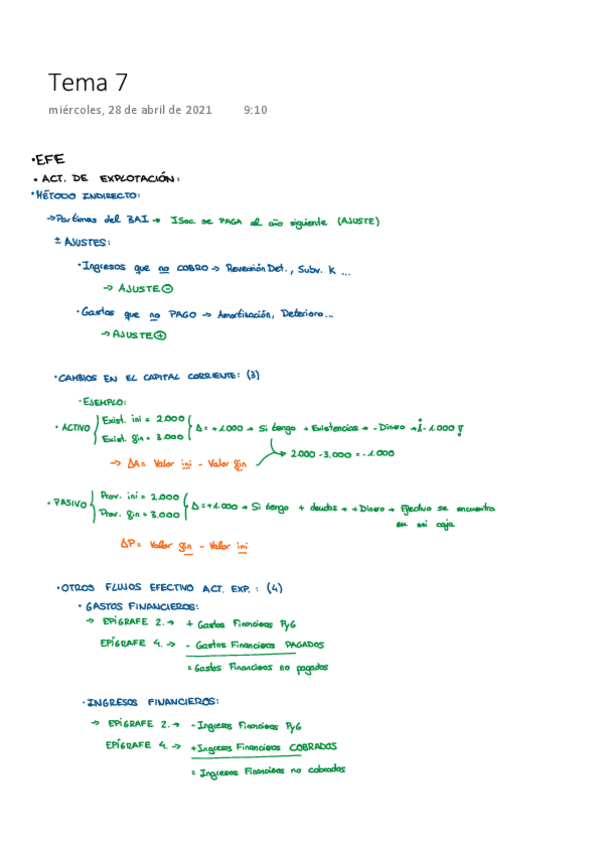 Tema 7
miércoles, 28 de abril de 2021 9:10
·EFE
· ACT. DE EXPLOTACIÓN:
·MÉTODO INDIRECTO:
->Partimos del BAI -> ISoc. se PAGA al año siguiente (AJUSTE)
± AJUSTES:
·Ingresos que no COBRO -> Reversión Det., Subv. K ...
-> AJUSTE ⊖
·Gastos que no PAGO -> Amortización, Deterioro...
-> AJUSTE ⊕
·CAMBIOS EN EL CAPITAL CORRIENTE: (3)
·EJEMPLO:
·ACTIVO { Exist. ini = 2.000
Exist. fin = 3.000 { Δ = +1.000 -> Si tengo + Existencias -> - Dinero -> ¡-1.000!
-> 2.000 - 3.000 = -1.000
-> ΔA = Valor ini - Valor fin
·PASIVO { Prov. ini = 2.000
Prov. fin = 3.000 { Δ = +1.000 -> Si tengo + deudas -> + Dinero -> Efectivo se encuentra
en mi caja
ΔP = Valor fin - Valor ini
·OTROS FLUJOS EFECTIVO ACT. EXP. : (4)
· GASTOS FINANCIEROS:
-> EPÍGRAFE 2. -> + Gastos Financieros PyG
EPÍGRAFE 4. -> - Gastos Financieros PAGADOS
= Gastos Financieros no pagados
·INGRESOS FINANCIEROS:
-> EPÍGRAFE 2. -> - Ingresos Financieros PyG
EPÍGRAFE 4. -> + Ingresos Financieros COBRADOS
= Ingresos Financieros no cobrados